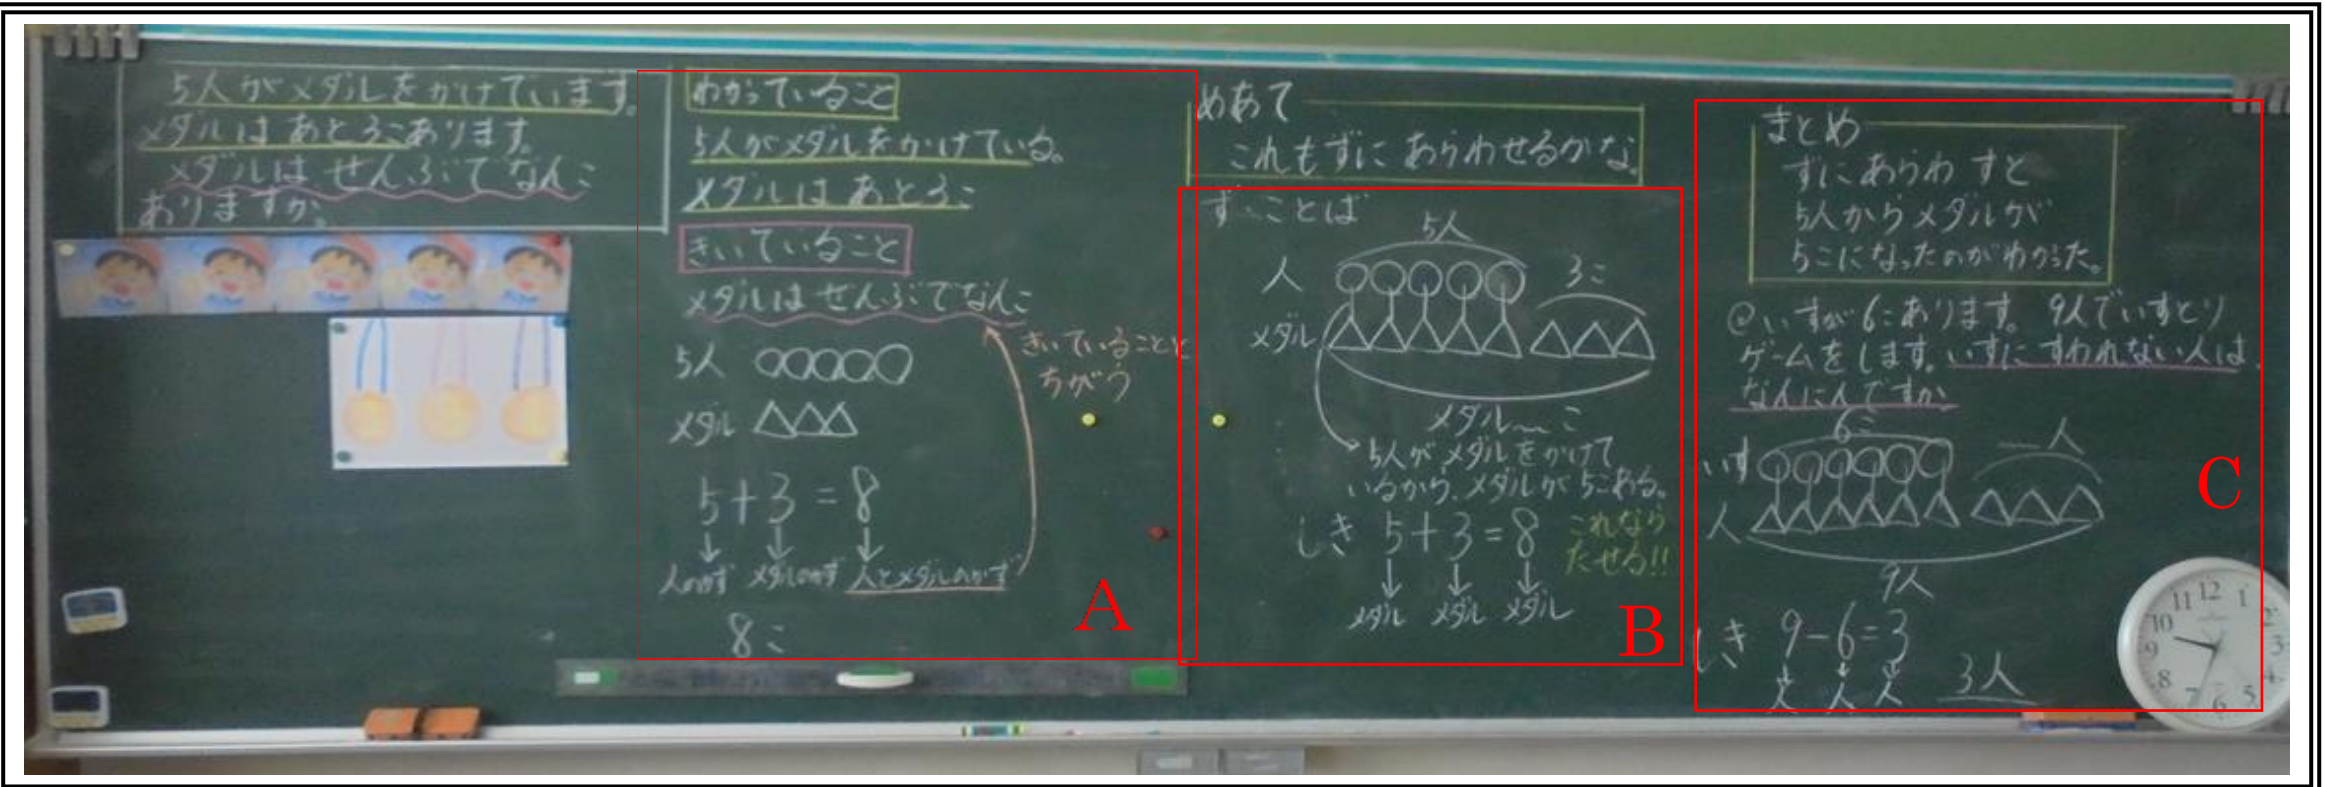 5人がメダルをかけています。
メダルはあと3こあります。
メダルはぜんぶでなんこ
ありますか。
わかっていること
5人がメダルをかけている。
メダルはあと3こ
きいていること
メダルはぜんぶでなんこ
きいていることと
ちがう
5人
メダル
5+3=8
人のかず メダルのかず 人とメダルのかず
8こ
A
めあて
これもずにあらわせるかな。
ず、ことば
5人
人
3こ
メダル
メダル こ
5人がメダルをかけて
いるから、メダルが5こある。
しき 5+3=8
これなら
たせる!!
メダル メダル メダル
B
まとめ
ずにあらわすと
5人からメダルが
5こになったのがわかった。
@いすが6こあります。9人でいすとり
ゲームをします。いすにすわれない人は
なんにんですか
6こ
人
いす
人
9人
しき 9-6=3
人 人 人
3人
C
12
1
2
3
4
5
6
7
8
9
10
11